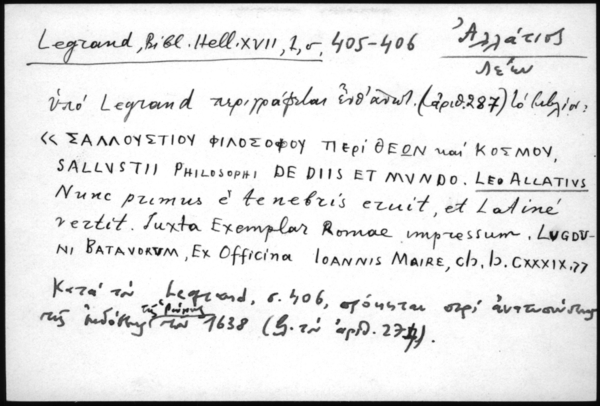 Legrand, Bibl. Hell. XVII, 1, σ. 405-406
Ἀλλάτιος
Λέων
ὑπό Legrand περιγράφεται ἐνθ' ἀνωτ. (ἀριθ. 287) τό βιβλίον:
« ΣΑΛΛΟΥΣΤΙΟΥ ΦΙΛΟΣΟΦΟΥ ΠΕΡΙ ΘΕΩΝ καί ΚΟΣΜΟΥ,
SALLVSTII PHILOSOPHI DE DIIS ET MVNDO. LEO ALLATIVS
Nunc primus è tenebris eruit, et Latinè
vertit. Juxta Exemplar Romae impressum. LUGDU-
NI BATAVORVM, EX Officina IOANNIS MAIRE, cIɔ. Iɔ. CXXXIX. »
Κατά τόν Legrand, σ. 406, πρόκειται περί ἀνατυπώσεως
τῆς ἐκδόσεως τῆς Ρώμης τοῦ 1638 (ἀριθ. 274).